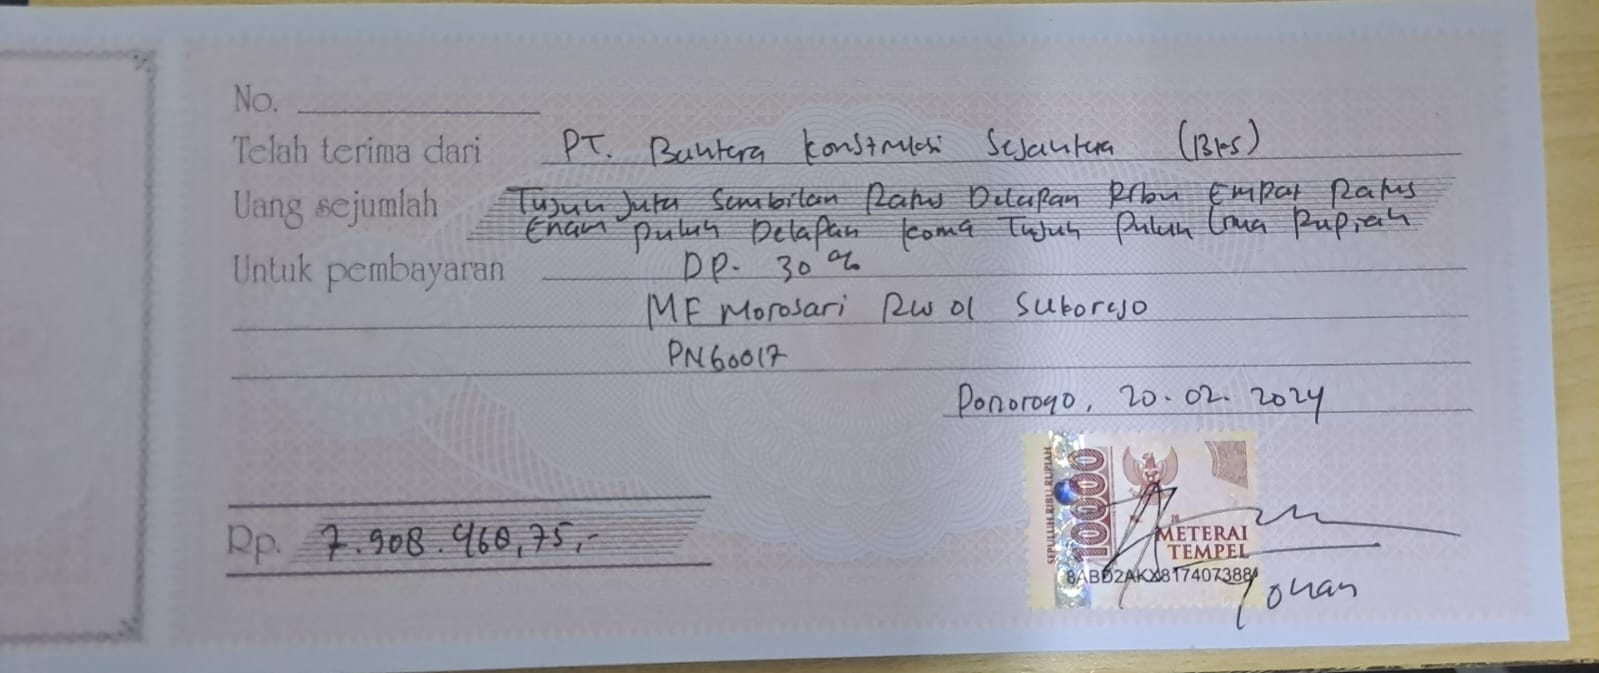 No.
Telah terima dari PT. Bahtera Konstruksi Sejahtera (BKS)
Uang sejumlah Tujuh Juta Sembilan Ratus Delapan Ribu Empat Ratus
Enam puluh Delapan koma Tujuh Puluh Lima Rupiah
Untuk pembayaran DP. 30%
MF Morosari RW 01 Sukorejo
PN60017
Ponorogo, 20.02.2024
SEPULUH RIBU RUPIAH
10000
METERAI
TEMPEL
Rp. 7.908.468,75,-
Yohan